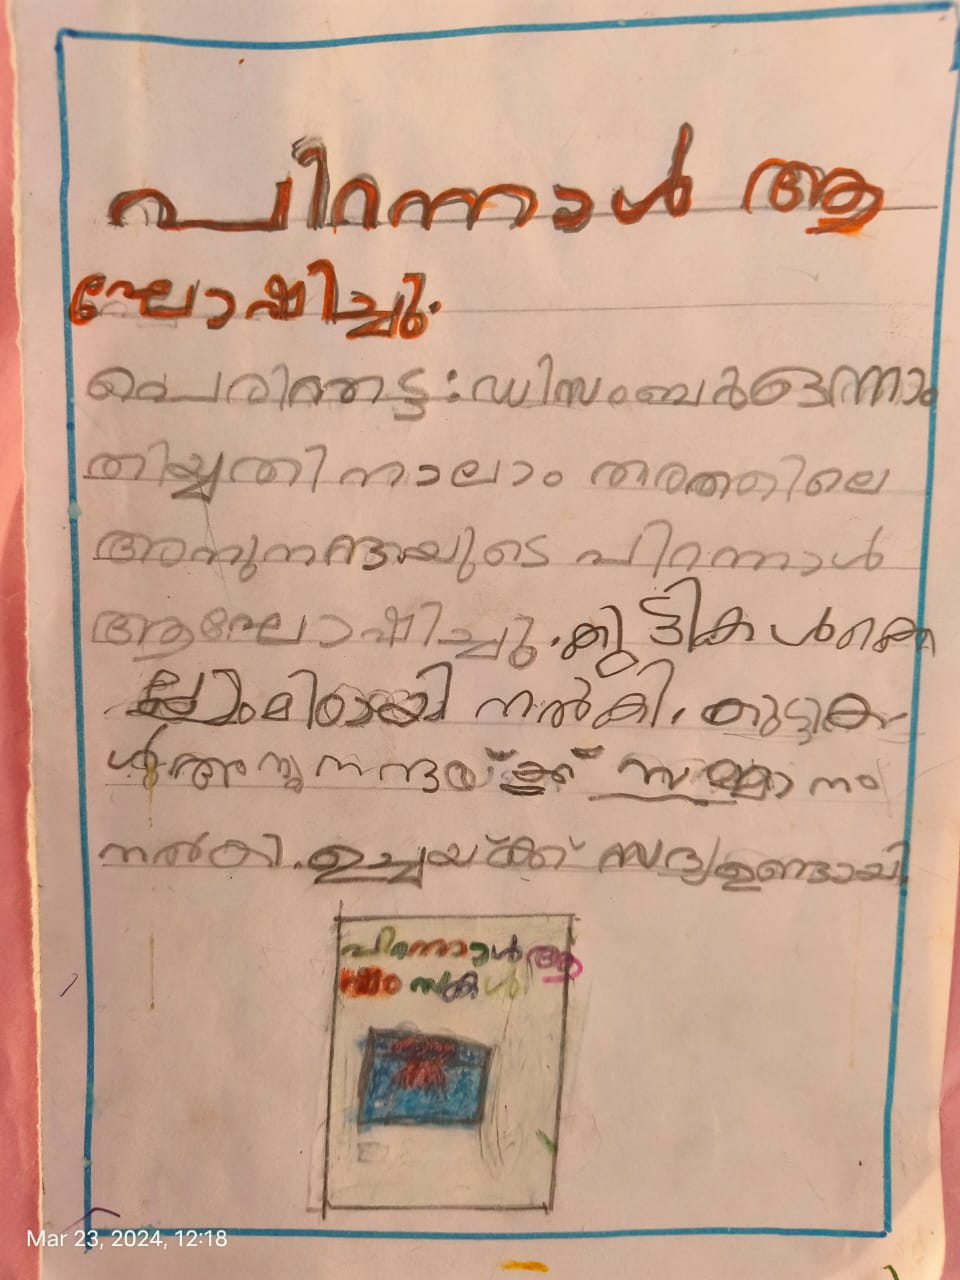 പിറന്നാൾ ആ
ഘോഷിച്ചു.
ഡിസംബർ ഒന്നാം
തിയ്യതി നാലാം തരത്തിലെ
അനുനന്ദയുടെ പിറന്നാൾ
ആഘോഷിച്ചു. കുട്ടികൾക്കെ
ല്ലാം മിഠായി നൽകി. കുട്ടിക
ൾ അനുനന്ദയ്ക്ക് സമ്മാനം
നൽകി. ഉച്ചയ്ക്ക് സദ്യ ഉണ്ടായി
പിറന്നാൾ ആ
Mar 23, 2024, 12:18